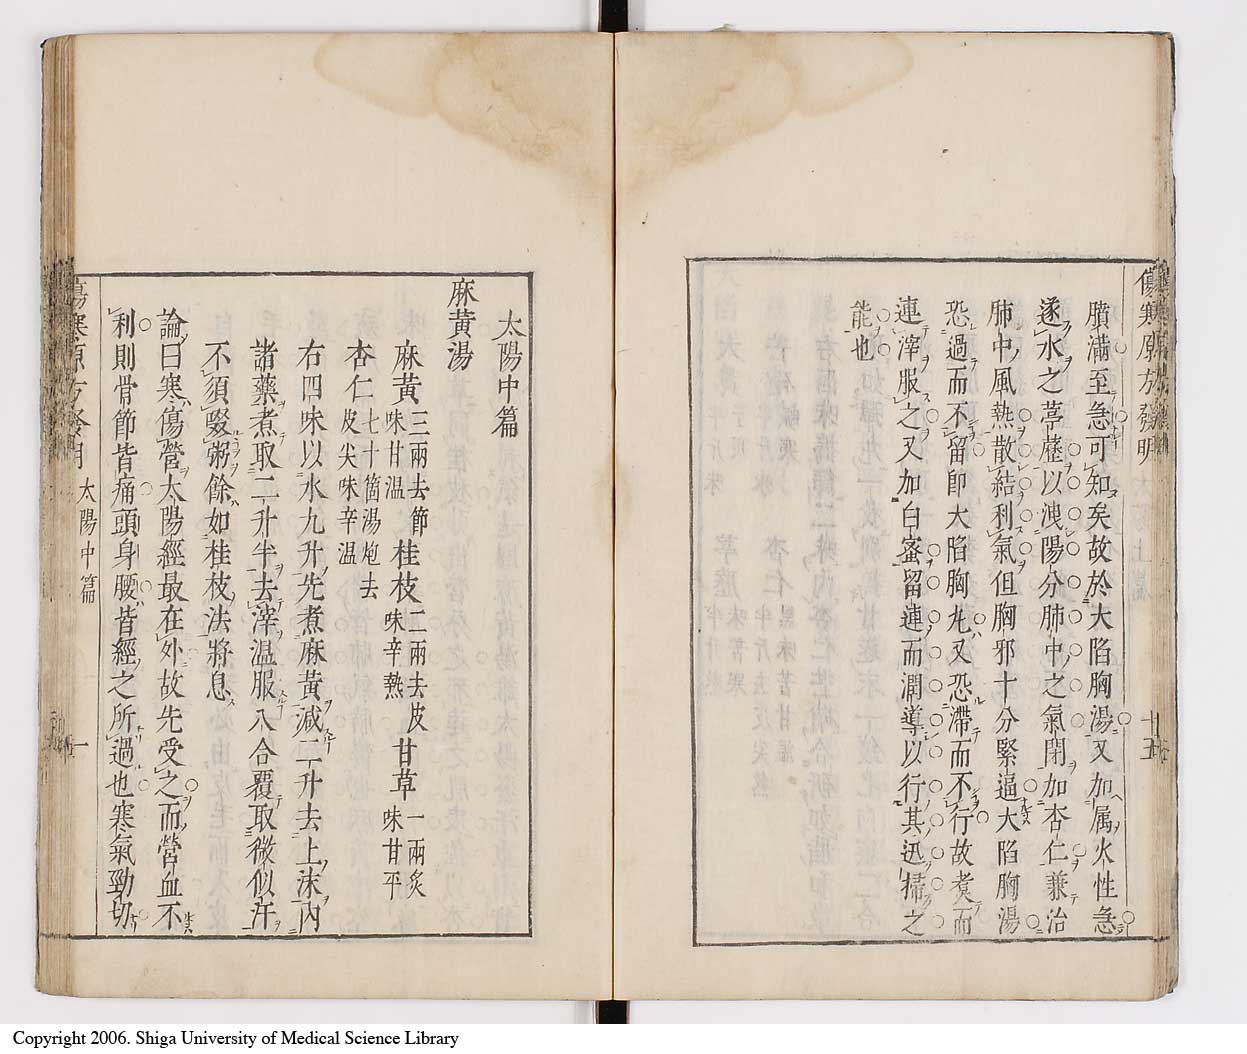 傷寒原方發明
十五
膹滿至急可知矣故於大陷胸湯又加属火性急
遂水之葶藶以洩陽分肺中之氣閉加杏仁蒹治
肺中風熱散結利氣但胸邪十分緊逼大陷胸湯
恐過而不留即大陷胸丸又恐滯而不行故煑而
連滓服之又加白蜜留連而潤導以行其迅掃之
能也
太陽中篇
麻黄湯
麻黄三兩去節味甘温桂枝二兩去皮味辛熱甘草一兩炙味甘平
杏仁七十箇湯炮去皮尖味辛温
右四味以水九升先煮麻黄減二升去上沫內
諸藥煮取二升半去滓温服八合覆取微似汗
不須啜粥餘如桂枝法將息
論曰寒傷營太陽經最在外故先受之而營血不
利則骨節皆痛頭身腰皆經之所過也寒氣勁切
傷寒原方發明
太陽中篇
一
Copyright 2006. Shiga University of Medical Science Library